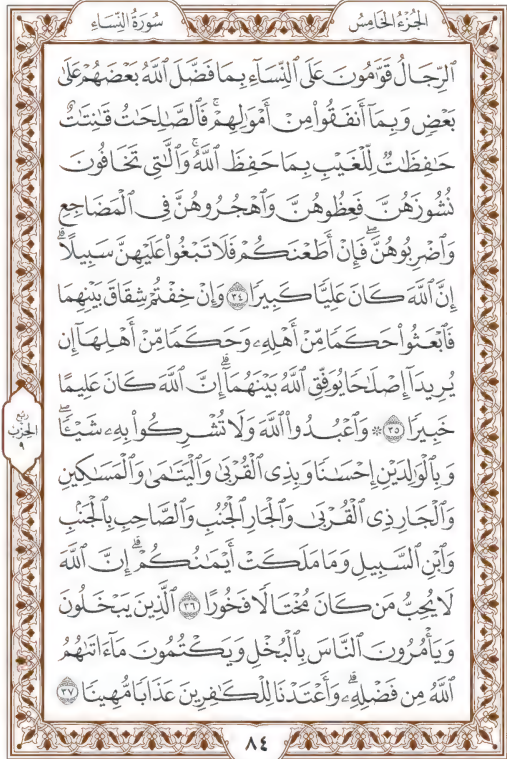 الجُزْءُ الخَامِسُ
سُورَةُ النِّسَاءِ
ٱلرِّجَالُ قَوَّٰمُونَ عَلَى ٱلنِّسَآءِ بِمَا فَضَّلَ ٱللَّهُ بَعْضَهُمْ عَلَىٰ
بَعْضٍ وَبِمَآ أَنفَقُوا۟ مِنْ أَمْوَٰلِهِمْ ۚ فَٱلصَّـٰلِحَـٰتُ قَـٰنِتَـٰتٌ
حَـٰفِظَـٰتٌ لِّلْغَيْبِ بِمَا حَفِظَ ٱللَّهُ ۚ وَٱلَّـٰتِى تَخَافُونَ
نُشُوزَهُنَّ فَعِظُوهُنَّ وَٱهْجُرُوهُنَّ فِى ٱلْمَضَاجِعِ
وَٱضْرِبُوهُنَّ ۖ فَإِنْ أَطَعْنَكُمْ فَلَا تَبْغُوا۟ عَلَيْهِنَّ سَبِيلًا ۗ
إِنَّ ٱللَّهَ كَانَ عَلِيًّا كَبِيرًا ٣٤ وَإِنْ خِفْتُمْ شِقَاقَ بَيْنِهِمَا
فَٱبْعَثُوا۟ حَكَمًا مِّنْ أَهْلِهِۦ وَحَكَمًا مِّنْ أَهْلِهَآ إِن
يُرِيدَآ إِصْلَـٰحًا يُوَفِّقِ ٱللَّهُ بَيْنَهُمَآ ۗ إِنَّ ٱللَّهَ كَانَ عَلِيمًا
خَبِيرًا ٣٥ ۞ وَٱعْبُدُوا۟ ٱللَّهَ وَلَا تُشْرِكُوا۟ بِهِۦ شَيْـًٔا ۖ
وَبِٱلْوَٰلِدَيْنِ إِحْسَـٰنًا وَبِذِى ٱلْقُرْبَىٰ وَٱلْيَتَـٰمَىٰ وَٱلْمَسَـٰكِينِ
وَٱلْجَارِ ذِى ٱلْقُرْبَىٰ وَٱلْجَارِ ٱلْجُنُبِ وَٱلصَّاحِبِ بِٱلْجَنۢبِ
وَٱبْنِ ٱلسَّبِيلِ وَمَا مَلَكَتْ أَيْمَـٰنُكُمْ ۗ إِنَّ ٱللَّهَ
لَا يُحِبُّ مَن كَانَ مُخْتَالًا فَخُورًا ٣٦ ٱلَّذِينَ يَبْخَلُونَ
وَيَأْمُرُونَ ٱلنَّاسَ بِٱلْبُخْلِ وَيَكْتُمُونَ مَآ ءَاتَىٰهُمُ
ٱللَّهُ مِن فَضْلِهِۦ ۗ وَأَعْتَدْنَا لِلْكَـٰفِرِينَ عَذَابًا مُّهِينًا ٣٧
ربع
الحِزْب
٩
٨٤